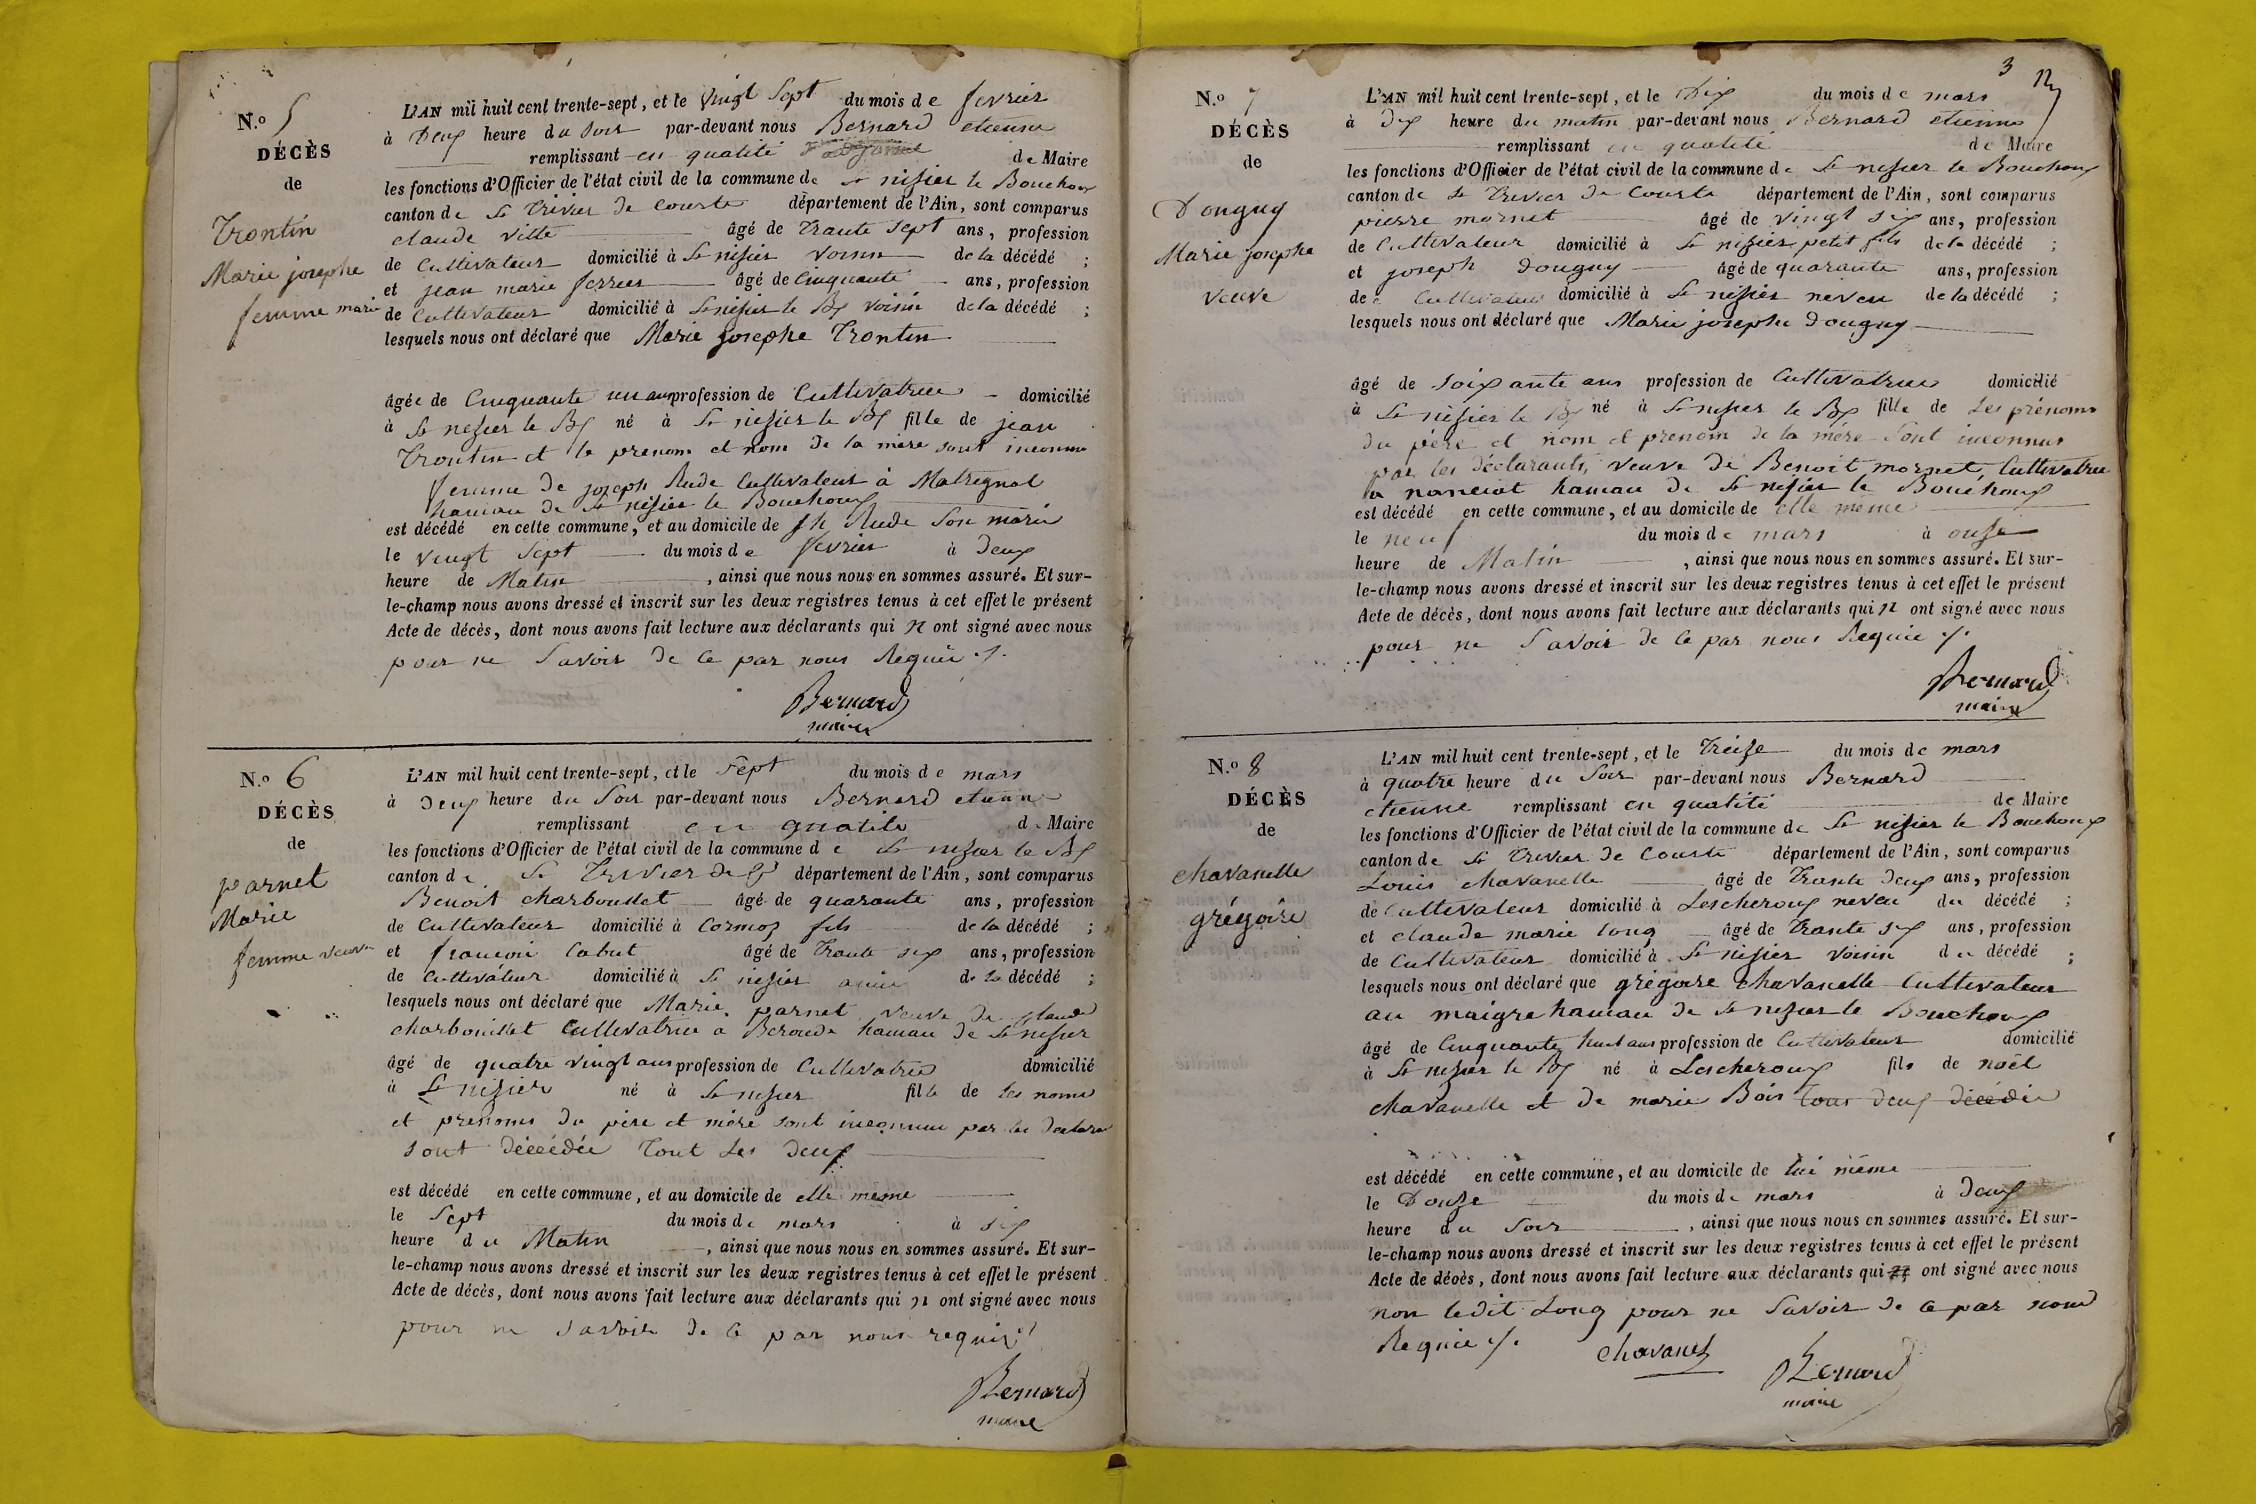 N.º 5
DÉCÈS
de
Trontin
Marie josephe
femme marie
L'AN mil huit cent trente-sept, et le vingt sept du mois de fevrier
à Deux heure du soir par-devant nous Bernard etienne
remplissant en qualité de Maire
les fonctions d'Officier de l'état civil de la commune de St nisier le Bouchoux
canton de St Trivier de Courte département de l'Ain, sont comparus
claude ville âgé de Trante sept ans, profession
de Cultivateur domicilié à St nisier voisin de la décédé ;
et jean marie ferrier âgé de Cinquante ans, profession
de Cultivateur domicilié à St nisier le Bx voisin de la décédé ;
lesquels nous ont déclaré que Marie josephe Trontin
âgée de Cinquante un ans profession de Cultivatrice domicilié
à St nisier le Bx né à St nisier le Bx fille de jean
Trontin et le prenom et nom de la mère sont inconnu
femme de joseph Rude Cultivateur à Matregnat
hameau de St nisier le Bouchoux
est décédé en cette commune, et au domicile de jh Rude Son marie
le vingt sept du mois de fevrier à Deux
heure de Matin , ainsi que nous nous en sommes assuré. Et sur-
le-champ nous avons dressé et inscrit sur les deux registres tenus à cet effet le présent
Acte de décès, dont nous avons fait lecture aux déclarants qui n ont signé avec nous
pour ne Savoir de Ce par nous Requie ./.
Bernard
maire
N.º 6
DÉCÈS
de
parnet
Marie
femme veuve
L'AN mil huit cent trente-sept, et le sept du mois de mars
à Deux heure du Soir par-devant nous Bernard etienne
remplissant en qualité de Maire
les fonctions d'Officier de l'état civil de la commune de St nisier le Bx
canton de St Trivier de département de l'Ain, sont comparus
Benoit charboullet âgé de quarante ans, profession
de Cultivateur domicilié à Cormoz fils de la décédé ;
et francoi Cabut âgé de Trante six ans, profession
de Cultivateur domicilié à St nisier amie de la décédé ;
lesquels nous ont déclaré que Marie parnet veuve de claude
charbouillet Cultivatrice a Beroude hameau de St nisier
âgé de quatre vingt ans profession de Cultivatrice domicilié
à St nisier né à St nisier fille de les noms
et prenoms du père et mère sont inconnu par les declara
sont décédée Tout Les Deux
est décédé en cette commune, et au domicile de elle même
le Sept du mois de mars à six
heure du Matin , ainsi que nous nous en sommes assuré. Et sur-
le-champ nous avons dressé et inscrit sur les deux registres tenus à cet effet le présent
Acte de décès, dont nous avons fait lecture aux déclarants qui n ont signé avec nous
pour ne savoir de Ce par nous requie ./
Bernard
maire
3
N.º 7
DÉCÈS
de
Douguy
Marie josephe
veuve
L'AN mil huit cent trente-sept, et le Dix du mois de mars
à Dix heure du matin par-devant nous Bernard etienne
remplissant en qualité de Maire
les fonctions d'Officier de l'état civil de la commune de St nisier le Bouchoux
canton de St Trivier de Courte département de l'Ain, sont comparus
pierre mornet âgé de vingt six ans, profession
de Cultivateur domicilié à St nisier petit fils de la décédé ;
et joseph Douguy âgé de quarante ans, profession
de Cultivateur domicilié à St nisier neveu de la décédé ;
lesquels nous ont déclaré que Marie josephe Douguy
âgé de soixante ans profession de Cultivatrice domicilié
à St nisier le Bx né à St nisier le Bx fille de Les prénoms
du père et nom et prenom de la mère sont inconnus
par les déclarants, veuve de Benoit mornet, Cultivatrice
a nanciat hameau de St nisier le Bouchoux
est décédé en cette commune, et au domicile de elle même
le neuf du mois de mars à onse
heure de Matin , ainsi que nous nous en sommes assuré. Et sur-
le-champ nous avons dressé et inscrit sur les deux registres tenus à cet effet le présent
Acte de décès, dont nous avons fait lecture aux déclarants qui n ont signé avec nous
pour ne Savoir de Ce par nous Requie ./.
Bernard
maire
N.º 8
DÉCÈS
de
chavanelle
grégoire
L'AN mil huit cent trente-sept, et le Treize du mois de mars
à quatre heure du Soir par-devant nous Bernard
etienne remplissant en qualité de Maire
les fonctions d'Officier de l'état civil de la commune de St nisier le Bouchoux
canton de St Trivier de Courte département de l'Ain, sont comparus
Louis chavanelle âgé de Trante Deux ans, profession
de Cultivateur domicilié à Lescheroux neveu du décédé ;
et claude marie long âgé de Trante six ans, profession
de Cultivateur domicilié à St nisier voisin du décédé ;
lesquels nous ont déclaré que grégoire chavanelle Cultivateur
au maigre hameau de St nisier le Bouchoux
âgé de Cinquante huit ans profession de Cultivateur domicilié
à St nisier le Bx né à Lescheroux fils de noël
chavanelle et de marie Bois tous deux décédée
est décédé en cette commune, et au domicile de lui même
le Douze du mois de mars à Deux
heure du Soir , ainsi que nous nous en sommes assuré. Et sur-
le-champ nous avons dressé et inscrit sur les deux registres tenus à cet effet le présent
Acte de décès, dont nous avons fait lecture aux déclarants qui ont signé avec nous
non ledit Long pour ne Savoir de Ce par nous
Requie ./.
chavanel
Bernard
maire